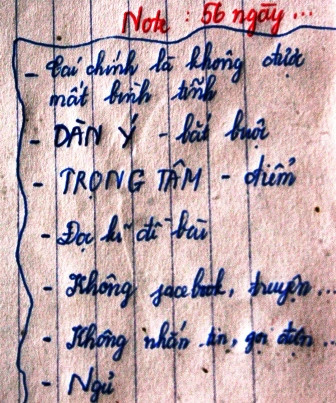 Note : 56 ngày ...
- Cái chính là không được
mất bình tĩnh
- DÀN Ý - bắt buộc
- TRỌNG TÂM - điểm
- Đọc kĩ đề bài
- Không facebook, truyện ...
- Không nhắn tin, gọi điện ...
- Ngủ